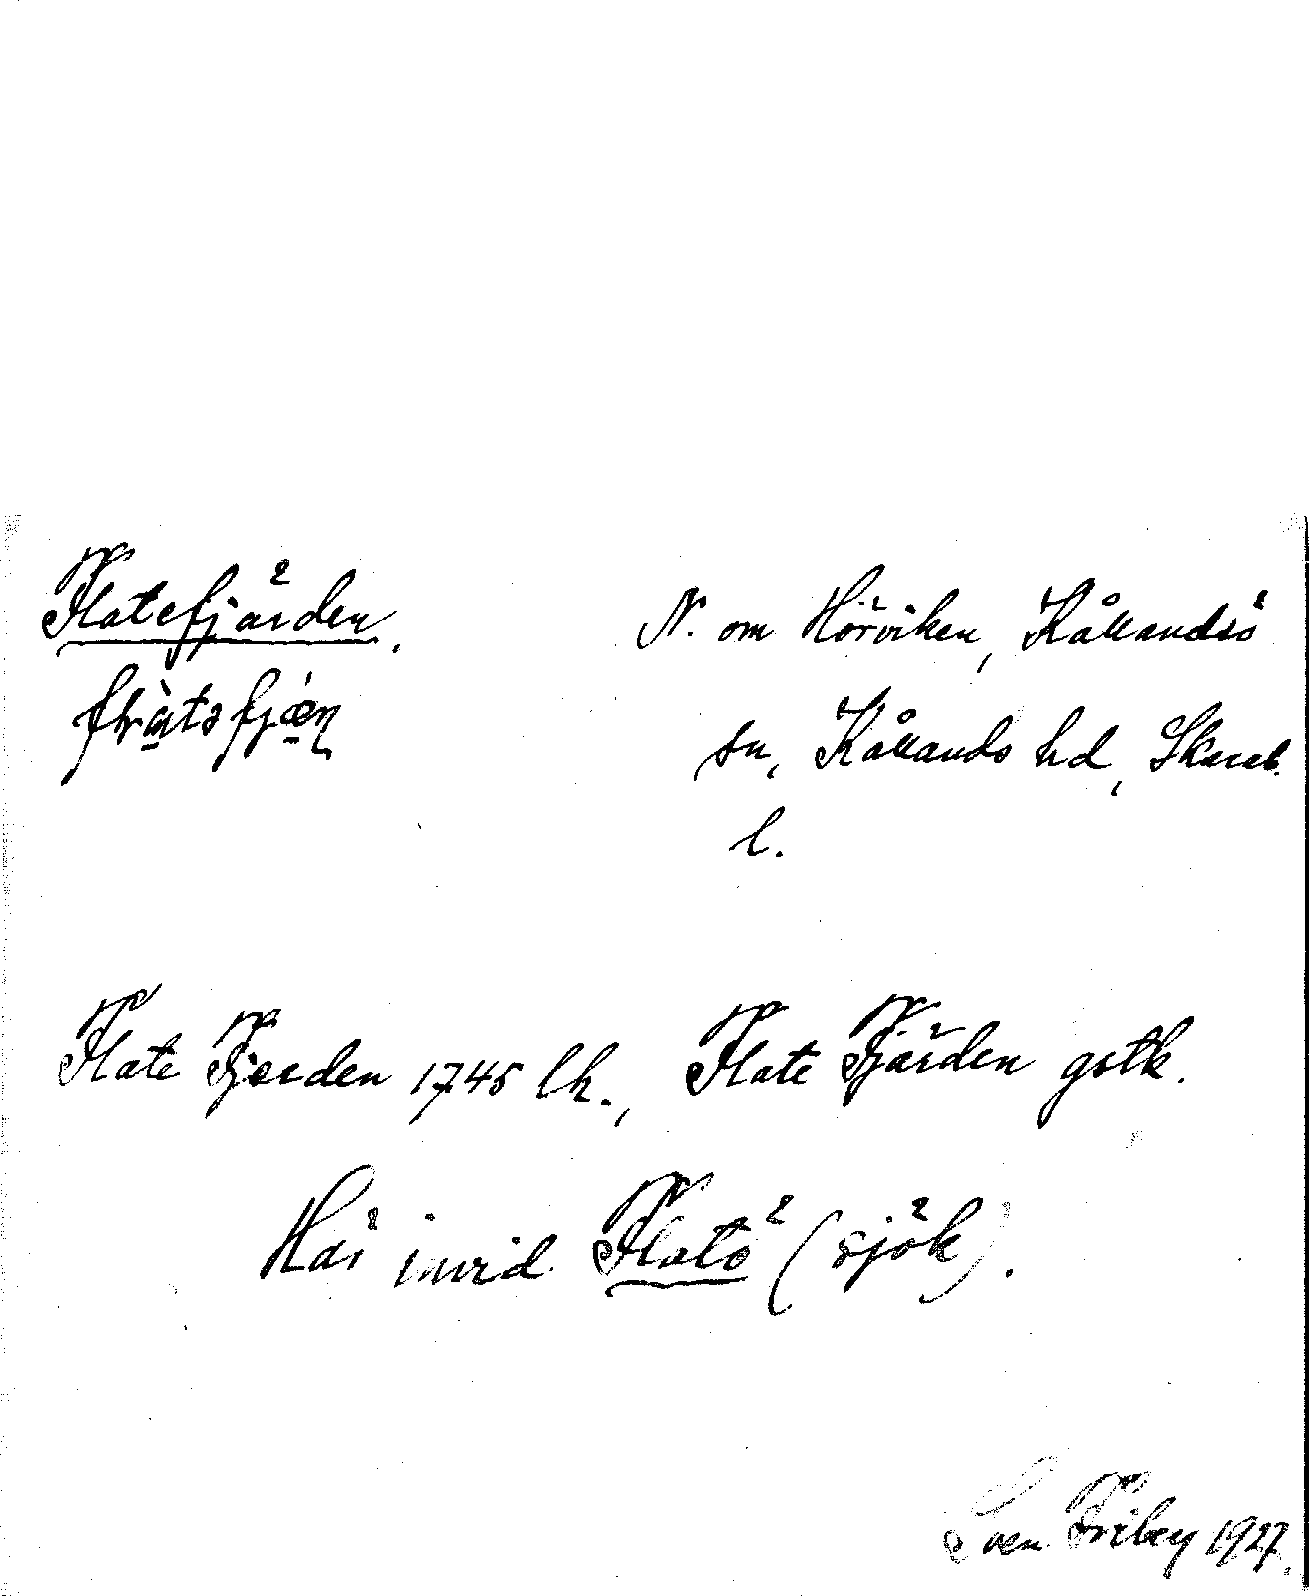 Flatefjärden.
N. om Hörviken, Kållandsö
sn, Kållands hd, Skarab.
l.
Flate Fjerden 1745 lk., Flate Fjärden gstk.
Här invid Flatö (sjök).
Sven Friberg 1927.